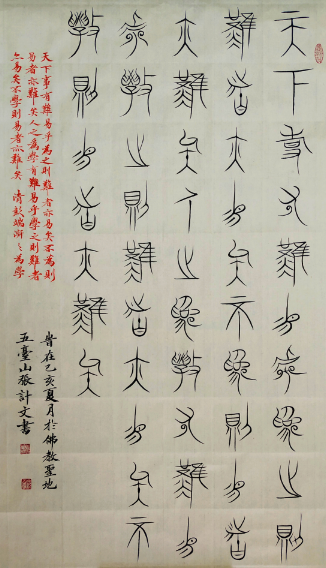 天下事有難易乎為之則
難者亦易矣不為則易者
亦難矣人之為學有難易
乎學之則難者亦易矣不
學則易者亦難矣
天下事有難易乎為之則難者亦易矣不為則
易者亦難矣人之為學有難易乎學之則難者
亦易矣不學則易者亦難矣 清彭端淑之為學
旹在己亥夏月於佛教聖地
五臺山張計文書